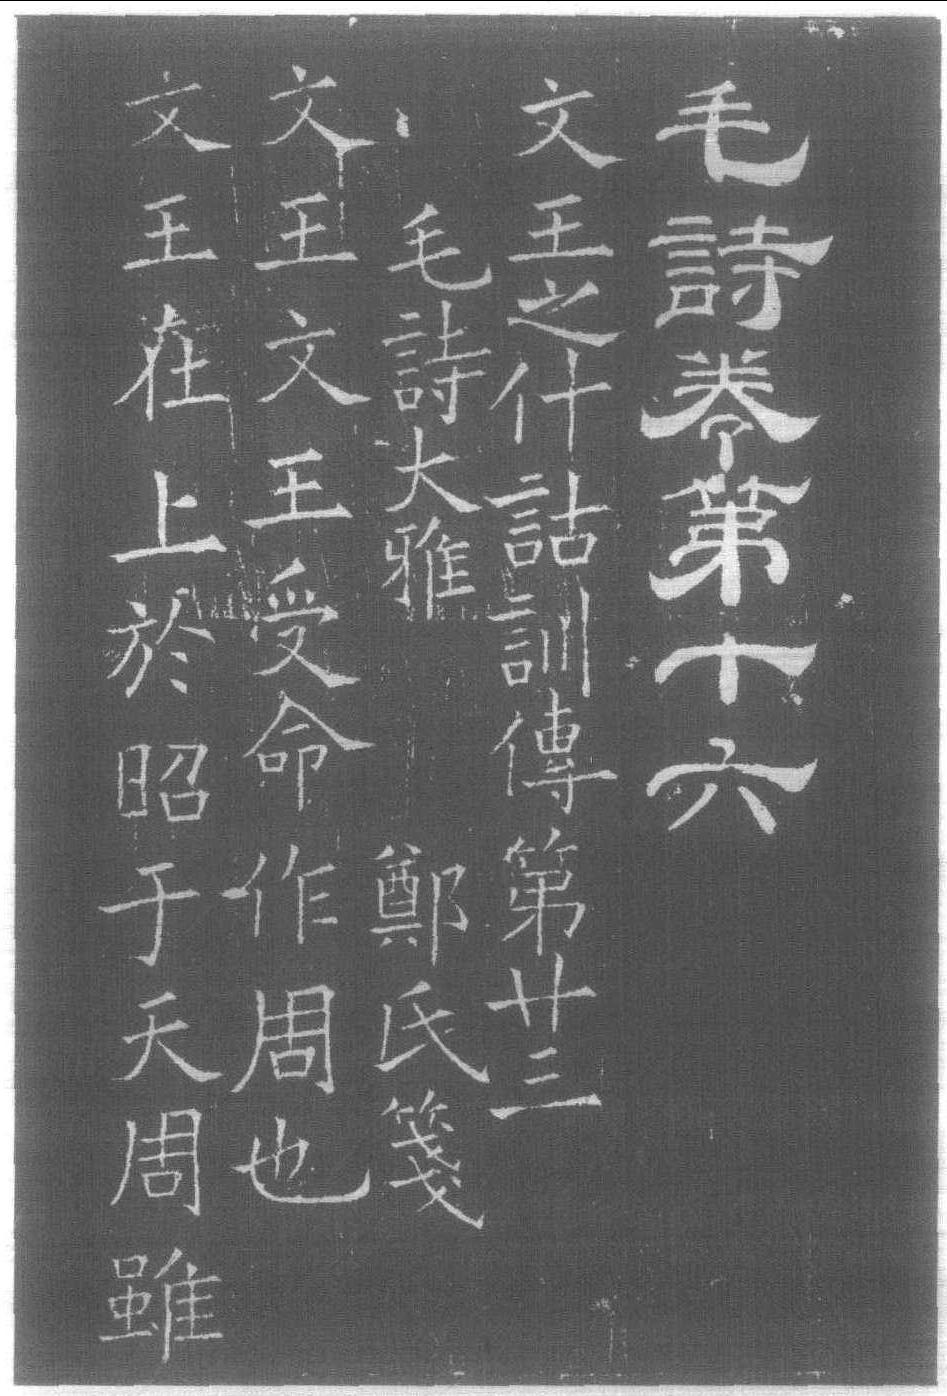 毛詩卷第十六
文王之什詁訓傳第廿三
毛詩大雅 鄭氏箋
文王文王受命作周也
文王在上於昭于天周雖